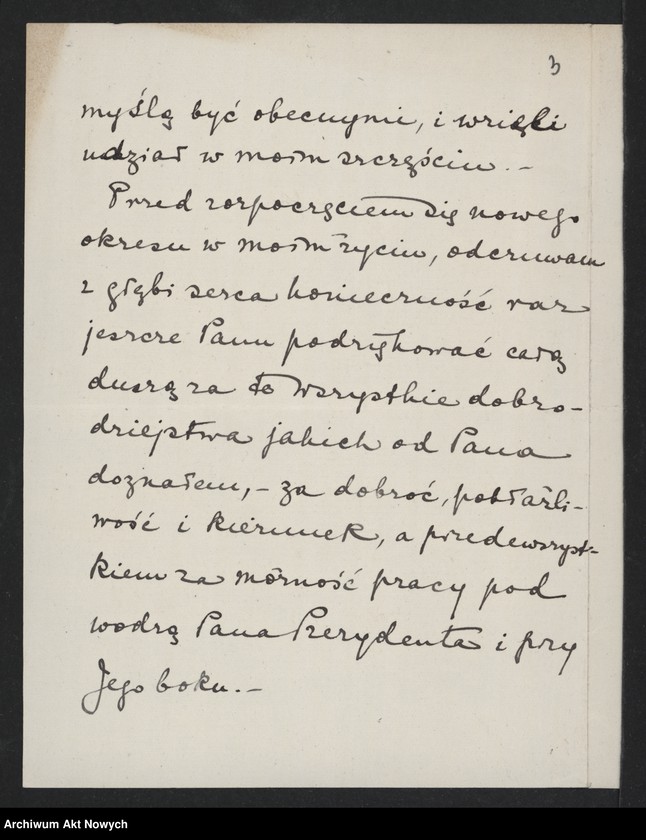 3
myślą być obecnymi, i wzięli
udział w moim szczęściu. –
Przed rozpoczęciem się nowego
okresu w moim życiu, odczuwam
z głębi serca konieczność raz
jeszcze Panu podziękować całą
duszą za te wszystkie dobro-
dziejstwa jakich od Pana
doznałem, – za dobroć, pobłażli-
wość i kierunek, a przedewszyst-
kiem za możność pracy pod
wodzą Pana Prezydenta i przy
Jego boku. –
Archiwum Akt Nowych